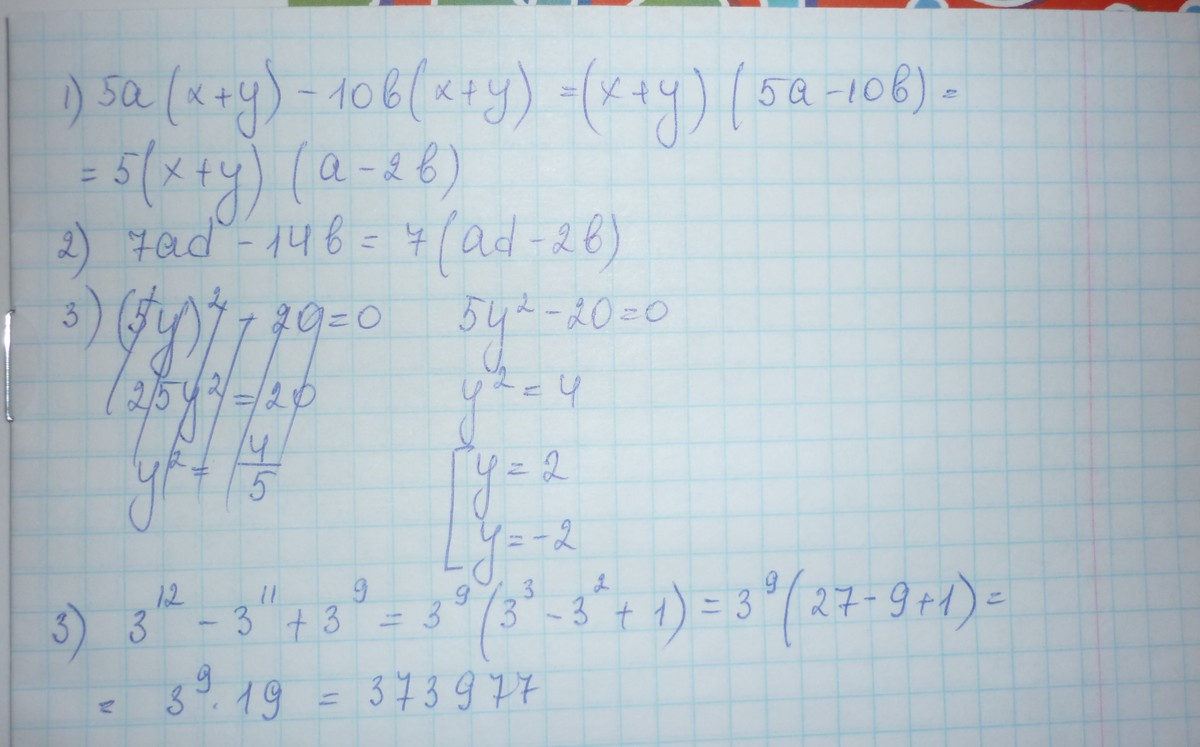 1) 5a (x+y) - 10в(x+y) = (x+y) (5a - 10в) =
= 5(x+y) (a - 2в)
2) 7ad - 14в = 7(ad - 2в)
3) (5y)² - 20 = 0
25y² = 20
y² = 4/5
5y² - 20 = 0
y² = 4
[ y = 2
y = -2
3) 3¹² - 3¹¹ + 3⁹ = 3⁹ (3³ - 3² + 1) = 3⁹ (27 - 9 + 1) =
= 3⁹ · 19 = 373977